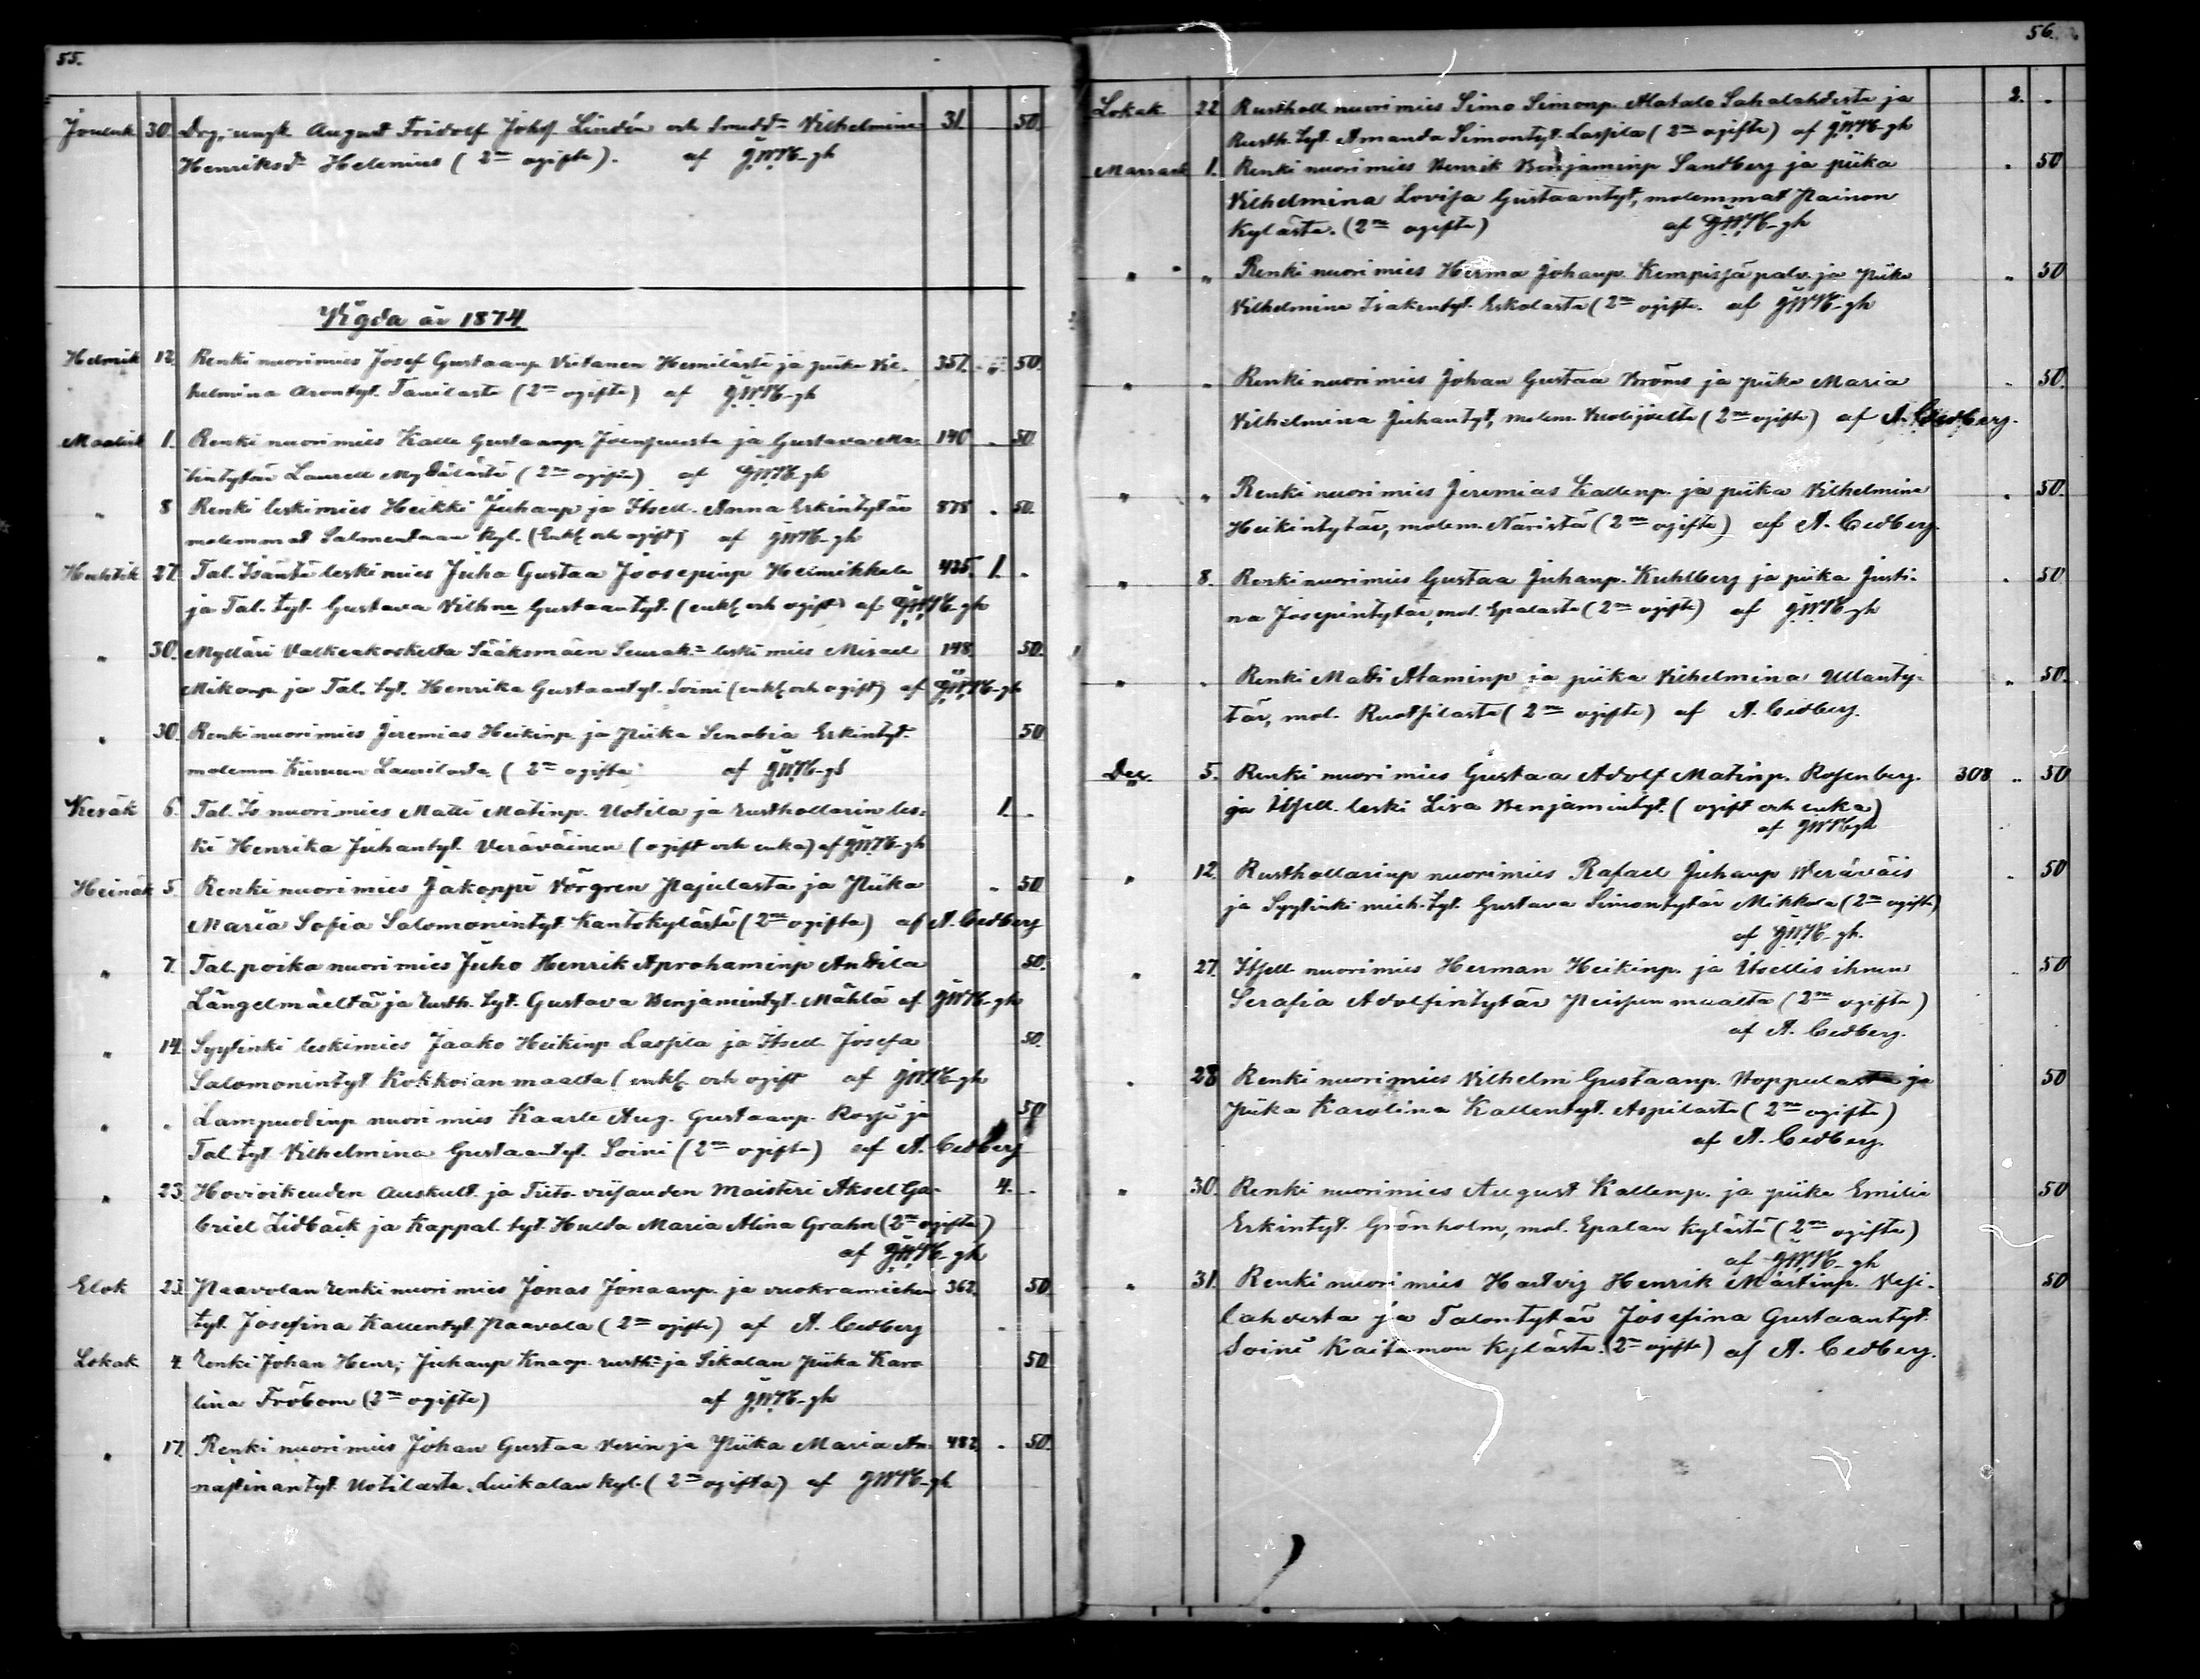 55.
Jouluk 30. Drg, ungk August Fridolf Johsf Lindén och Smedd:r Vilhelmina 31. 50.
Henriksd:r Helenius (2:ne ogifte). af GWH-gh
Vigda år 1874
Helmik 12. Renki nuorimies Josef Gustaanp. Virtanen Hemilästä ja piika Vil- 357. " 50.
helmina Arontyt. Tanilasta (2:ne ogifte) af GWH-gh
Maalisk 1. Renki nuorimies Kalle Gustaanp. ja Gustava Ma- 140 . 50.
tintytär Laurell (2:ne ogifte) af GWH-gh
" 8 Renki leskimies Heikki Juhanp ja Itsell. Anna Erkintytär 878 . 50.
molemmat Salmentaan kyl. (Enkl och ogift) af GWH-gh
Huhtik 27. Tal. Isäntä leskimies Juha Gustaa Joosepinp Heimikkala 425. 1. .
ja Tal. tyt. Gustava Vilhna Gustaantyt. (enkl och ogift) af GWH-gh
" 30. Mylläri Valkeakoskelta Sääksmäen Seurak:a leskimies Misael 148. 50.
Mikonp. ja Tal. tyt. Henrika Gustaantyt. Soini (enkl och ogift) af GWH-gh
" 30. Renki nuorimies Jeremias Heikinp. ja Piika Senobia Erkintyt. 50
molemm. Laurilasta (2:ne ogifte af GWH-gh
Kesäk 6. Tal. Is. nuorimies Matti Matinp. Uotila ja rusthollarin les- 1. .
ki Henrika Juhantyt. Veräväinen (ogift och enka) af GWH-gh
Heinäk 5. Renki nuorimies Jakoppi Törgren Pajulasta ja Piika . 50
Maria Sofia Salomonintyt Kantokylästä (2:ne ogifta) af A. Cedberg
" 7. Tal. poika nuorimies Juho Henrik Aprahaminp Anttila 50.
Längelmäeltä ja rusth. tyt. Gustava Benjamintyt. Mählä af GWH-gh
" 14. Syytinki leskimies Jaako Heikinp Laspla ja Itsell. Josefa 50.
Salomonintyt Kokkoian maalta (enkl och ogift af GWH-gh
" . Lampuodinp nuorimies Kaarle Aug. Gustaanp. ja 50
Tal. tyt Vilhelmina Gustaantyt. Soini (2:ne ogifte) af A. Cedberg
" 23. Hovioikeuden Auskult. ja Maisteri Aksel Ga- 4. .
briel Lidbäck ja Kappal. tyt. Hulda Maria Alina Grahn (2:ne ogifte)
af GWH-gh
Elok 23. Paavolan renki nuorimies Jonas Jonaanp. ja vuokramiehen 362. 50.
tyt. Josefina Kallentyt. Paavola (2:ne ogifte) af A. Cedberg
Lokak 4. renki Johan Henr; Juhanp Knaap. rusth:a ja Sikalan piika Karo 50.
lina Fröbom (2:ne ogifte) af GWH-gh
" 17. Renki nuorimies Johan Gustaa Vesin ja Piika Maria An- 482. . 50.
nastinantyt. Uotilasta. Luikalan kyl. (2:ne ogifta) af GWH-gh
56.
Lokak 22 Rusthol. nuorimies Simo Simonp. Alatalo Sahalahdesta ja 2. .
Rusth. tyt. Amanda Simontyt. Laspila (2:ne ogifte) af GWH-gh
Marrask 1. Renki nuorimies Henrik Benjaminp Sandberg ja piika . 50
Vilhelmina Lovisa Gustaantyt, molemmat Painon
kylästä. (2:ne ogifte) af GWH-gh
" " Renki nuorimies Herma Johanp. ja piika " 50
Vilhelmina Isakentyt. Eskolasta (2:ne ogifte. af GWH-gh
" " Renki nuorimies Johan Gustaa Broms ja piika Maria . 50.
Vilhelmina Juhantyt, molem. (2:ne ogifte) af A. Cedberg.
" " Renki nuorimies Jeremias Kallenp. ja piika Vilhelmina . 50.
Heikintytär, molem. Näristä (2:ne ogifte) af A. Cedberg.
" 8. Renki nuorimies Gustaa Juhanp. Kuhlberg ja piika Justi- . 50
na Josepintytär, mol. Epalasta (2:ne ogifte) af GWH-gh
" . Renki Matti Ataminp ja piika Vilhelmina Ullanty- " 50.
tär, mol. (2:ne ogifte) af A. Cedberg.
Dec. 5. Renki nuorimies Gustaa Adolf Matinp. Rosenberg. 308 " 50
ja Itsell. leski Lisa Benjamintyt. (ogift och enka)
af GWH-gh
" 12. Rusthollarinp nuorimies Rafael Juhanp Weräväis . 50
ja Syytinki mieh. tyt. Gustava Simontytär Mikkola (2:ne ogifte)
af GWH-gh.
" 27. Itsell nuorimies Herman Heikinp. ja Itsellis ihmn " 50
Serafia Adolfintytär maalta (2:ne ogifte)
af A. Cedberg.
" 28 Renki nuorimies Vilhelm Gustaanp. Hoppula ja 50
Piika Karolina Kallentyt. Aspilasta (2:ne ogifte)
af A. Cedberg.
" 30. Renki nuorimies August Kallenp. ja piika Emilia 50
Erkintyt. Grönholm, mol. Epalan kylästä (2:ne ogifte)
af GWH-gh
" 31. Renki nuorimies Hartvig Henrik Martinp. Vesi- 50
lahdesta ja Talontytär Josefina Gustaantyt.
Soini Kaitamon kylästä. (2:ne ogifte) af A. Cedberg.